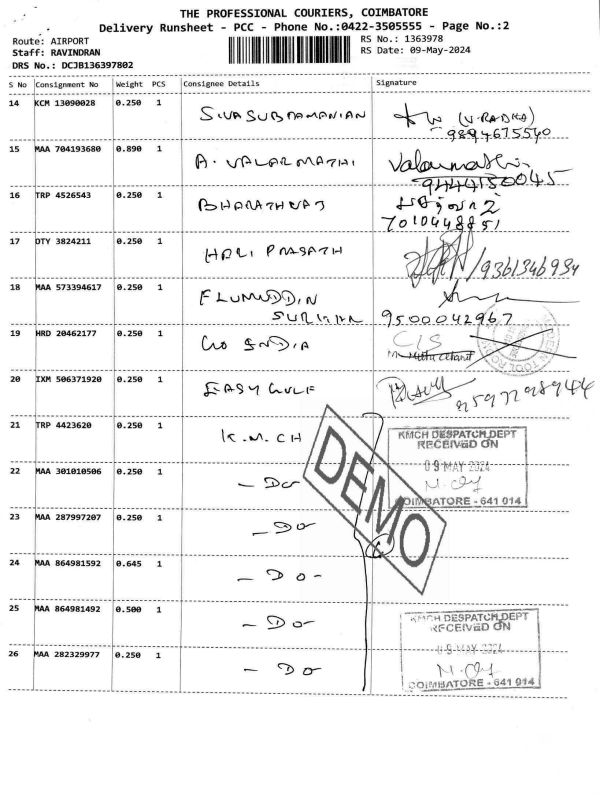 THE PROFESSIONAL COURIERS, COIMBATORE
Delivery Runsheet - PCC - Phone No.:0422-3505555 - Page No.:2
Route: AIRPORT
Staff: RAVINDRAN
DRS No.: DCJB136397802
RS No.: 1363978
RS Date: 09-May-2024
S No Consignment No Weight PCS Consignee Details Signature
14 KCM 13090028 0.250 1 SIVASUBRAMANIAN (V.RADHA)
9894675540
15 MAA 704193680 0.890 1 A. VALARMATHI Valarmathi
9444150045
16 TRP 4526543 0.250 1 BHARATHURAJ
7010448851
17 OTY 3824211 0.250 1 HARI PRASATH /9361346934
18 MAA 573394617 0.250 1
9500042967
19 HRD 20462177 0.250 1 INDIA C/S
20 IXM 506371920 0.250 1 EASY GULF 9597298944
21 TRP 4423620 0.250 1 K.M.CH
KMCH DESPATCH DEPT
RECEIVED ON
09 MAY 2024
COIMBATORE - 641 014
22 MAA 301010506 0.250 1 - Do
23 MAA 287997207 0.250 1 - Do
24 MAA 864981592 0.645 1 - Do -
25 MAA 864981492 0.500 1 - Do -
26 MAA 282329977 0.250 1 - Do
KMCH DESPATCH DEPT
RECEIVED ON
09 MAY 2024
COIMBATORE - 641 014
DEMO